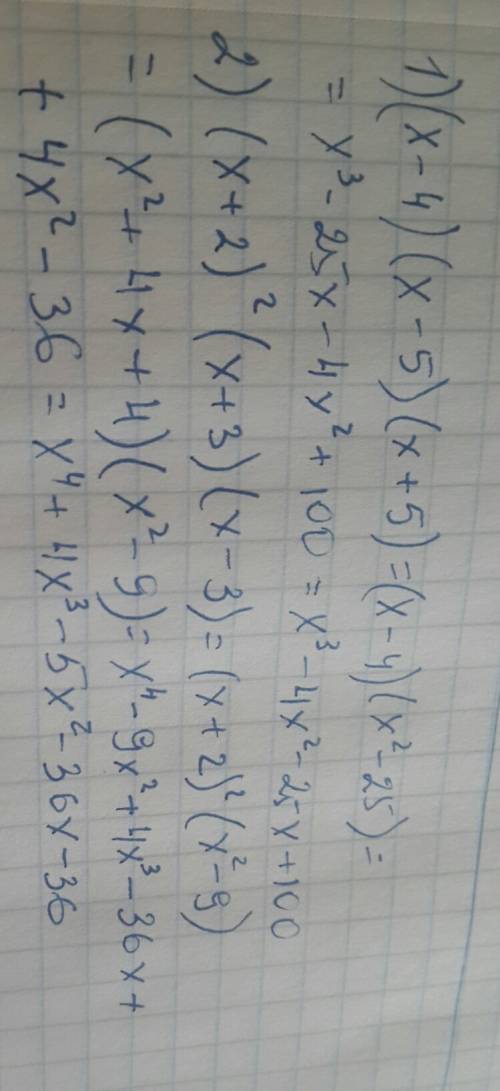 1) (x-4)(x-5)(x+5)=(x-4)(x²-25)=
= x³-25x-4x²+100 = x³-4x²-25x+100
2) (x+2)²(x+3)(x-3)=(x+2)²(x²-9)
= (x²+4x+4)(x²-9)= x⁴-9x²+4x³-36x+
+ 4x²-36 = x⁴+4x³-5x²-36x-36